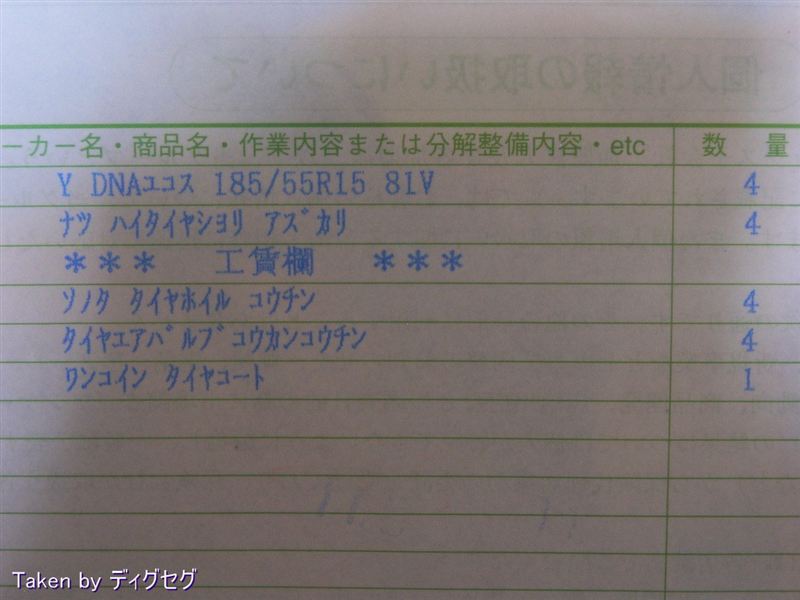 個人情報の取扱いについて
ーカー名・商品名・作業内容または分解整備内容・etc 数 量
Y DNAエコス 185/55R15 81V 4
ナツ ハイタイヤショリ アズカリ 4
*** 工賃欄 ***
ソノタ タイヤホイル コウチン 4
タイヤエアバルブコウカンコウチン 4
ワンコイン タイヤコート 1
Taken by ディグセグ